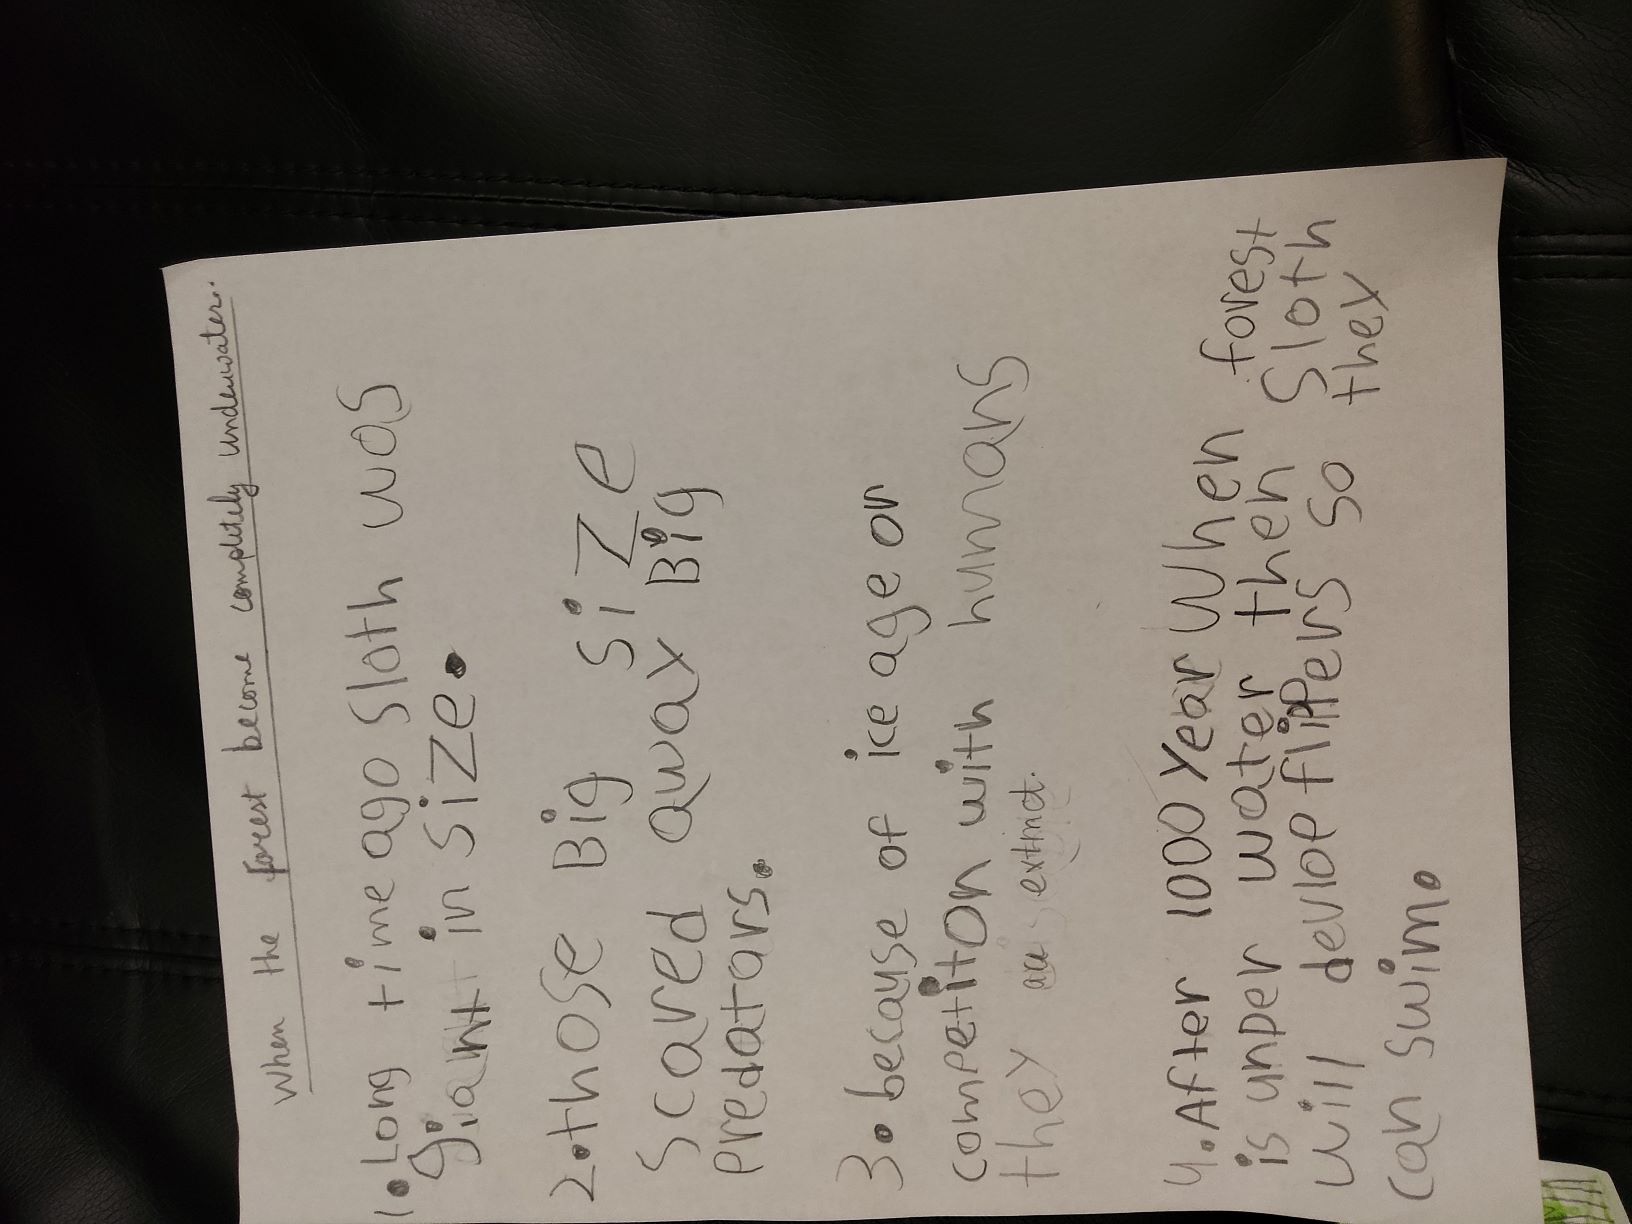 When the forest become completely underwater.
1. Long time ago sloth was
giant in size.
2. those Big size
Scared away Big
Predators.
3. because of ice age or
competiton with humans
they are extinct.
4. After 1000 Year When forest
is unper water then Sloth
will devlop flippers so they
can swim.